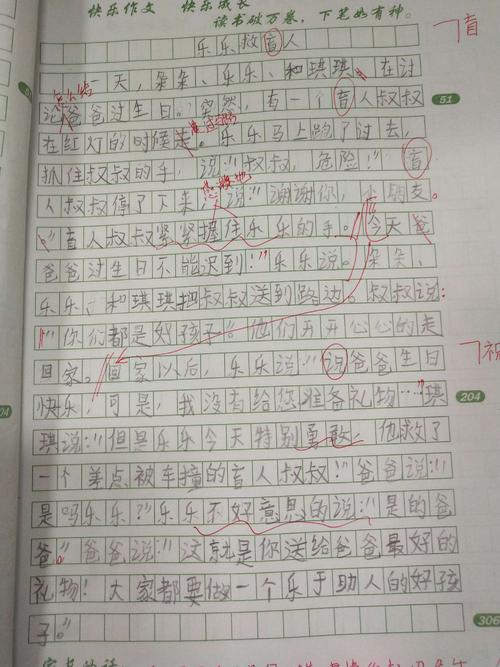 快乐作文 快乐成长
读书破万卷，下笔如有神。
乐乐救盲人
盲
一天，朵朵、乐乐、和琪琪，在讨
怎么给
论爸爸过生日。突然，有一个盲人叔叔
51
在红灯的时候走。乐乐马上跑了过去，
抓住叔叔的手，说："叔叔，危险！"盲
人叔叔停了下来 说："谢谢你，小朋友。
"盲人叔叔紧紧握住乐乐的手。今天爸
爸爸过生日不能迟到！"乐乐说。朵朵、
乐乐、和琪琪把叔叔送到路边。叔叔说：
"你们都是好孩子。"他们开开心心的走
回家。回家以后，乐乐说："说爸爸生日
祝
快乐，可是，我没有给您准备礼物…"琪
204
琪说："但是乐乐今天特别勇敢。他救了
一个差点被车撞的盲人叔叔！"爸爸说："
是吗乐乐？"乐乐不好意思的说："是的爸
爸。"爸爸说："这就是你送给爸爸最好的
礼物！大家都要做一个乐于助人的好孩
子。"
306